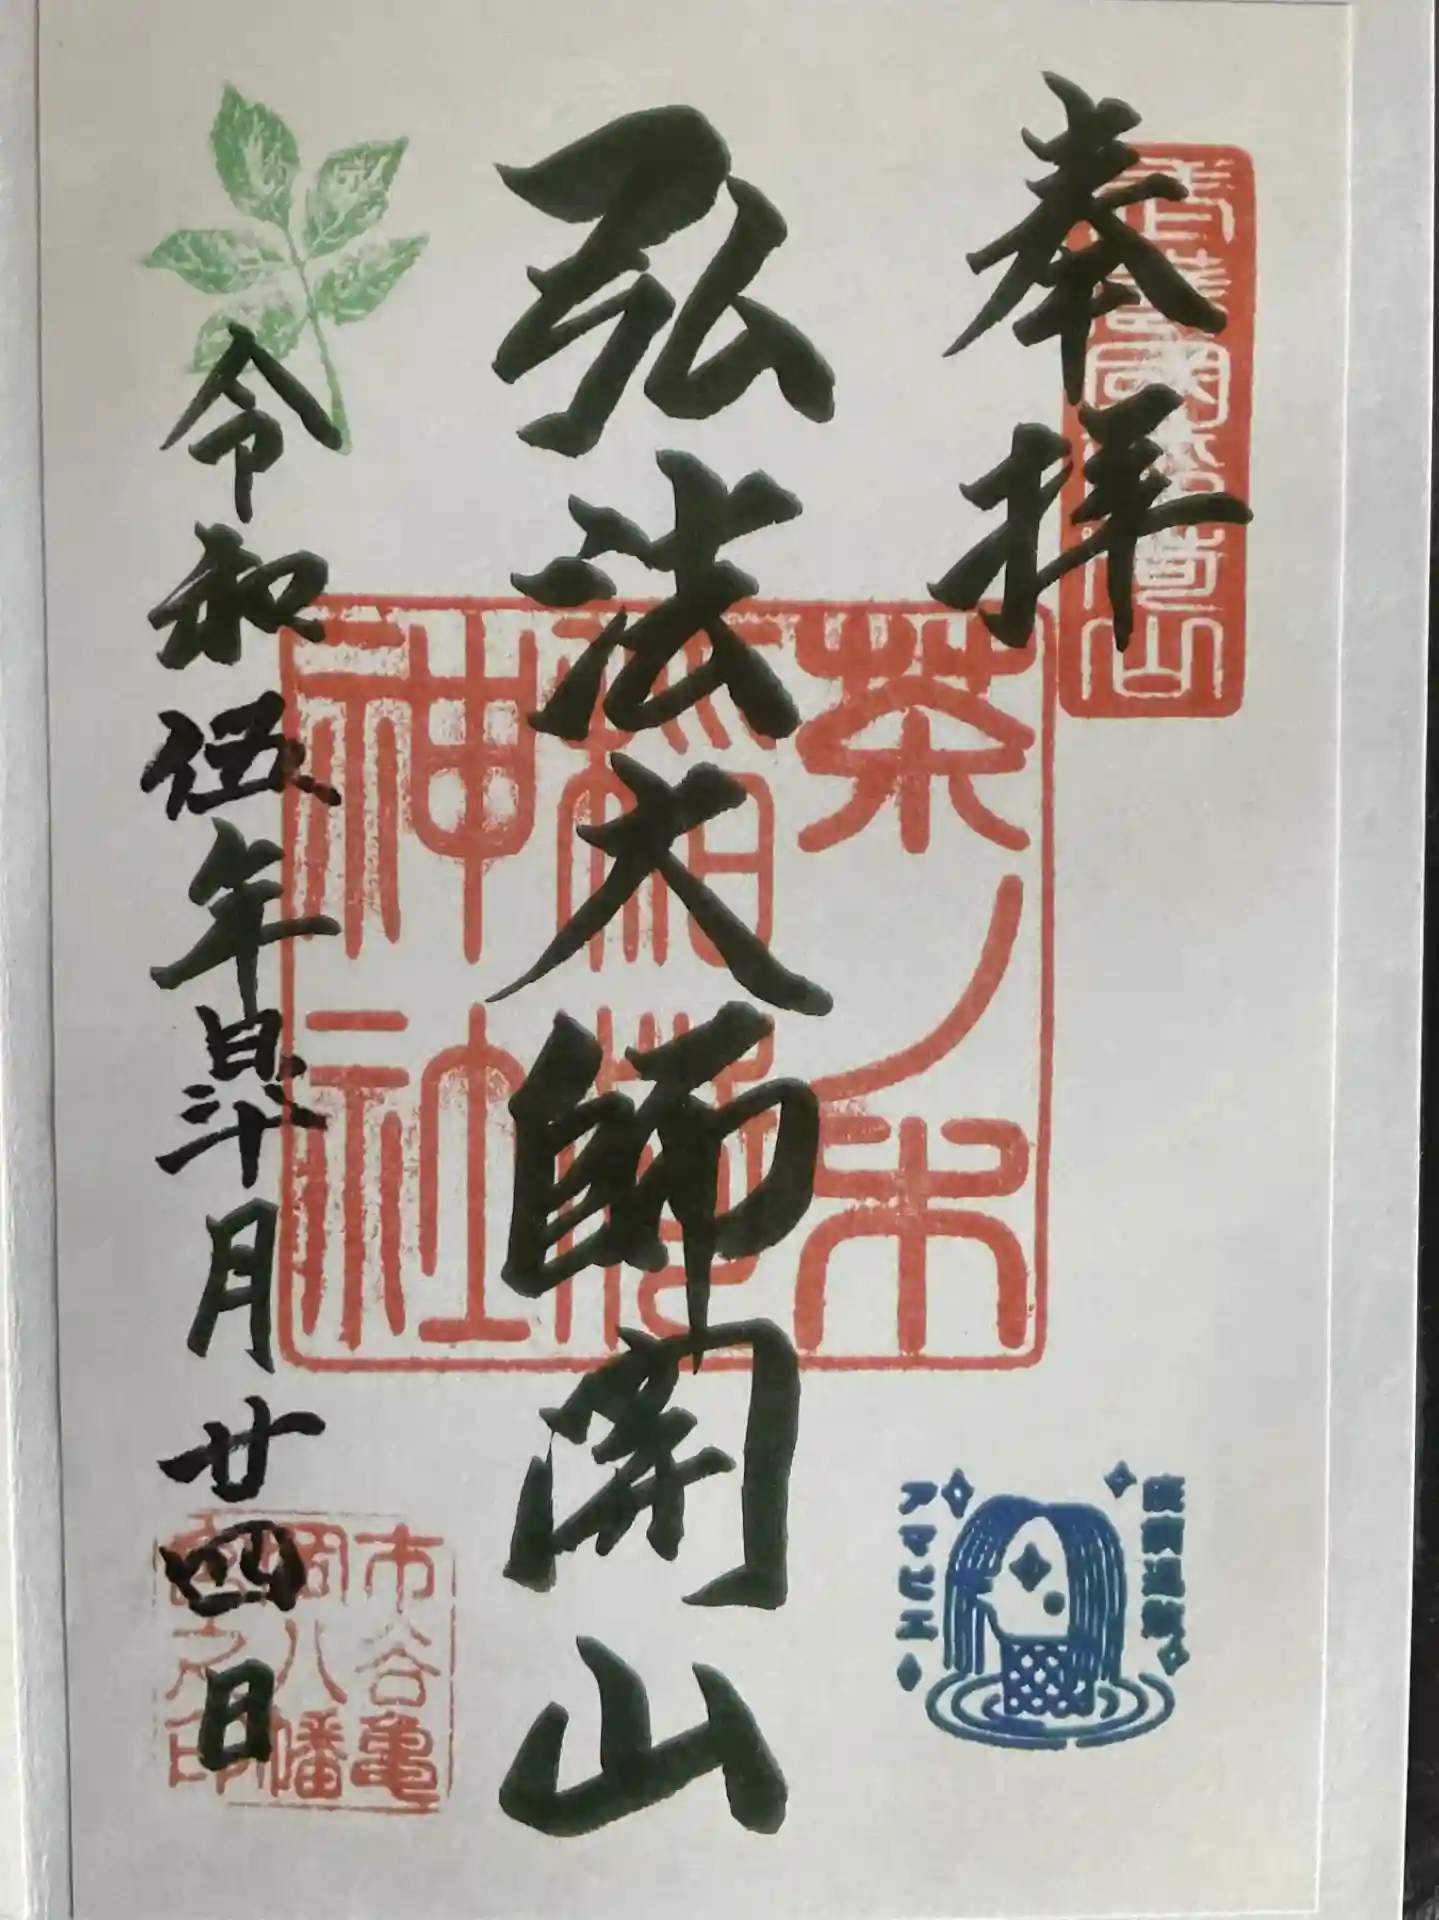 奉拝
疫病退散
アマビエ
弘法大師開山
茶ノ木
稲荷
神社
令和伍年皐月廿四日
市谷亀
岡八幡
宮之印